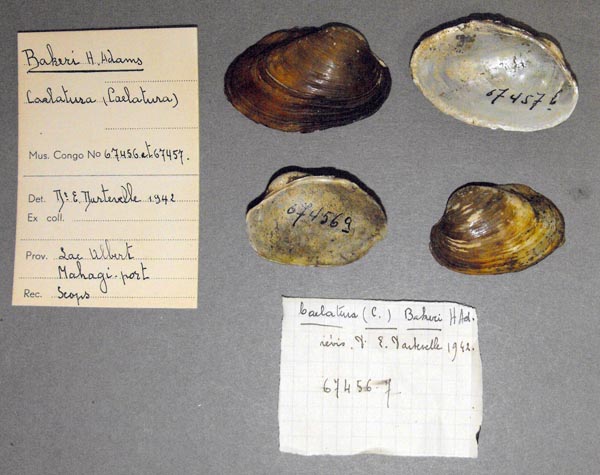 Bakeri H. Adams
Caelatura (Caelatura)
Mus. Congo No 67456 et 67457.
Det. Dr. E. Dartevelle 1942
Ex coll.
Prov. Lac Albert
Mahagi-port
Rec. Scops
67457
67456
Caelatura (C.) Bakeri H Ad.
révis. Dr E. Dartevelle 1942.
67456-7